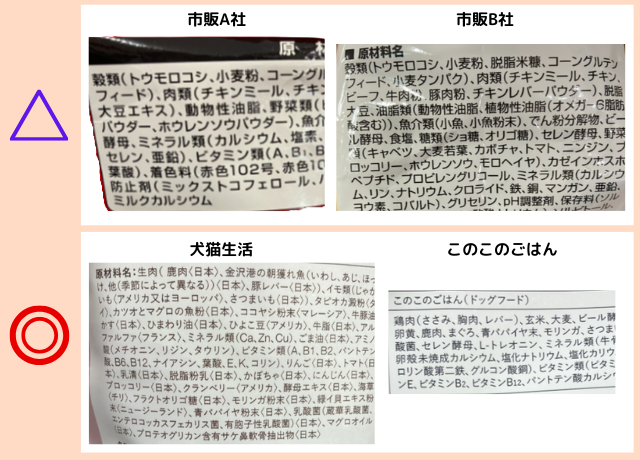 市販A社
原 材
穀類(トウモロコシ、小麦粉、コーングル
フィード)、肉類(チキンミール、チキン
大豆エキス)、動物性油脂、野菜類(
パウダー、ホウレンソウパウダー)、魚介
酵母、ミネラル類(カルシウム、塩素、
セレン、亜鉛)、ビタミン類(A、B₁、B
葉酸)、着色料(赤色102号、赤色10
防止剤(ミックストコフェロール、
ミルクカルシウム
市販B社
原材料名
穀類(トウモロコシ、小麦粉、脱脂米糠、コーングルテン
フィード、小麦タンパク)、肉類(チキンミール、チキン、
ビーフ、牛肉粉、豚肉粉、チキンレバーパウダー)、脱脂
大豆、油脂類(動物性油脂、植物性油脂(オメガ-6脂肪
酸含む))、魚介類(小魚、小魚粉末)、でん粉分解物、ビー
ル酵母、食塩、糖類(ショ糖、オリゴ糖)、セレン酵母、野菜
類(キャベツ、大麦若葉、カボチャ、トマト、ニンジン、ブ
ロッコリー、ホウレンソウ、モロヘイヤ)、カゼインホスホ
ペプチド、プロピレングリコール、ミネラル類(カルシウ
ム、リン、ナトリウム、クロライド、鉄、銅、マンガン、亜鉛、
ヨウ素、コバルト)、グリセリン、pH調整剤、保存料(ソル
犬猫生活
原材料名:生肉(鹿肉〈日本〉、金沢港の朝獲れ魚(いわし、あじ、ほっ
け、他(季節によって異なる))〈日本〉、豚レバー〈日本〉)、イモ類(じゃが
いも〈アメリカ又はヨーロッパ〉、さつまいも〈日本〉)、タピオカ澱粉〈タ
イ〉、カツオとマグロの魚粉〈日本〉、ココヤシ粉末〈マレーシア〉、牛豚油
かす〈日本〉、ひまわり油〈日本〉、ひよこ豆〈アメリカ〉、牛脂〈日本〉、アル
ファルファ〈フランス〉、ミネラル類(Ca,Zn,Cu)、ごま油〈日本〉、アミノ
酸(メチオニン、リジン、タウリン)、ビタミン類(A、B1、B2、パントテン
酸、B6、B12、ナイアシン、葉酸、E、K、コリン)、りんご〈日本〉、トマト〈日
本〉、乳清〈日本〉、脱脂粉乳〈日本〉、かぼちゃ〈日本〉、にんじん〈日本〉、
ブロッコリー〈日本〉、クランベリー〈アメリカ〉、酵母エキス〈日本〉、海草
〈チリ〉、フラクトオリゴ糖〈日本〉、モリンガ粉末〈日本〉、緑イ貝エキス粉
末〈ニュージーランド〉、青パパイヤ粉末〈日本〉、乳酸菌(蔵華乳酸菌、
エンテロコッカスフェカリス菌、有胞子性乳酸菌)〈日本〉、マグロオイル
〈日本〉、プロテオグリカン含有サケ鼻軟骨抽出物〈日本〉
このこのごはん
このこのごはん(ドッグフード)
鶏肉(ささみ、胸肉、レバー)、玄米、大麦、ビール酵
卵黄、鹿肉、まぐろ、青パパイヤ末、モリンガ、さつま
酸菌、セレン酵母、L-トレオニン、ミネラル類(牛
卵殻未焼成カルシウム、塩化ナトリウム、塩化カリウ
ロリン酸第二鉄、グルコン酸銅)、ビタミン類(ビタミ
ンE、ビタミンB₂、ビタミンB₁₂、パントテン酸カルシウ